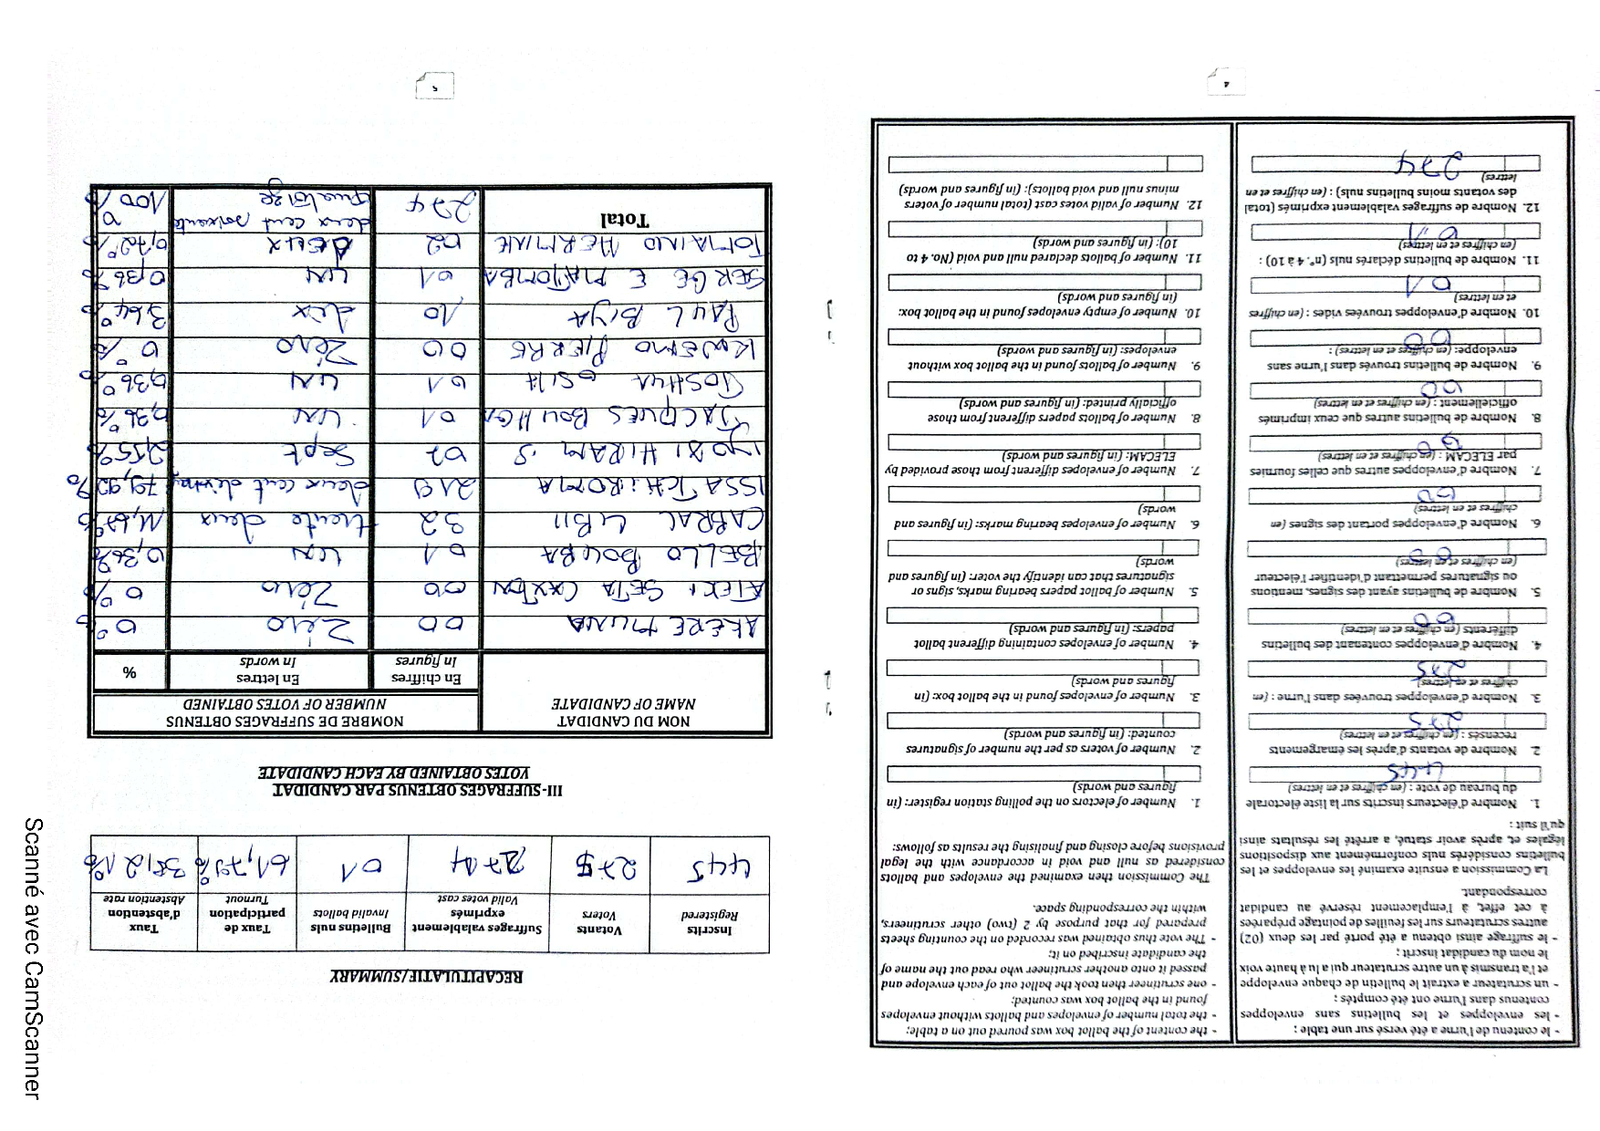 4
- le contenu de l'urne a été versé sur une table ;
- les enveloppes et les bulletins sans enveloppes
contenus dans l'urne ont été comptés ;
- un scrutateur a extrait le bulletin de chaque enveloppe
et l'a transmis à un autre scrutateur qui a lu à haute voix
le nom du candidat inscrit ;
- le suffrage ainsi obtenu a été porté par les deux (02)
autres scrutateurs sur les feuilles de pointage préparées
à cet effet, à l'emplacement réservé au candidat
correspondant.
La Commission a ensuite examiné les enveloppes et les
bulletins considérés nuls conformément aux dispositions
légales et, après avoir statué, a arrêté les résultats ainsi
qu'il suit :
1. Nombre d'électeurs inscrits sur la liste électorale
du bureau de vote : (en chiffres et en lettres)
445
2. Nombre de votants d'après les émargements
recensés : (en chiffres et en lettres)
275
3. Nombre d'enveloppes trouvées dans l'urne : (en
chiffres et en lettres)
275
4. Nombre d'enveloppes contenant des bulletins
différents (en chiffres et en lettres)
00
5. Nombre de bulletins ayant des signes, mentions
ou signatures permettant d'identifier l'électeur
(en chiffres et en lettres)
6. Nombre d'enveloppes portant des signes (en
chiffres et en lettres)
00
7. Nombre d'enveloppes autres que celles fournies
par ELECAM : (en chiffres et en lettres)
8. Nombre de bulletins autres que ceux imprimés
officiellement : (en chiffres et en lettres)
00
9. Nombre de bulletins trouvés dans l'urne sans
enveloppe: (en chiffres et en lettres) :
00
10. Nombre d'enveloppes trouvées vides : (en chiffres
et en lettres)
01
11. Nombre de bulletins déclarés nuls (n°. 4 à 10) :
(en chiffres et en lettres)
01
12. Nombre de suffrages valablement exprimés (total
des votants moins bulletins nuls) : (en chiffres et en
lettres)
274
- the content of the ballot box was poured out on a table;
- the total number of envelopes and ballots without envelopes
found in the ballot box was counted;
- one scrutineer then took the ballot out of each envelope and
passed it onto another scrutineer who read out the name of
the candidate inscribed on it;
- The vote thus obtained was recorded on the counting sheets
prepared for that purpose by 2 (two) other scrutineers,
within the corresponding space.
The Commission then examined the envelopes and ballots
considered as null and void in accordance with the legal
provisions before closing and finalising the results as follows:
1. Number of electors on the polling station register: (in
figures and words)
2. Number of voters as per the number of signatures
counted: (in figures and words)
3. Number of envelopes found in the ballot box: (in
figures and words)
4. Number of envelopes containing different ballot
papers: (in figures and words)
5. Number of ballot papers bearing marks, signs or
signatures that can identify the voter: (in figures and
words)
6. Number of envelopes bearing marks: (in figures and
words)
7. Number of envelopes different from those provided by
ELECAM: (in figures and words)
8. Number of ballots papers different from those
officially printed: (in figures and words)
9. Number of ballots found in the ballot box without
envelopes: (in figures and words)
10. Number of empty envelopes found in the ballot box:
(in figures and words)
11. Number of ballots declared null and void (No. 4 to
10): (in figures and words)
12. Number of valid votes cast (total number of voters
minus null and void ballots): (in figures and words)
5
RECAPITULATIF/SUMMARY
Inscrits Registered | Votants Voters | Suffrages valablement exprimés Valid votes cast | Bulletins nuls Invalid ballots | Taux de participation Turnout | Taux d'abstention Abstention rate
445 | 275 | 274 | 01 | 61,79% | 38,21%
III- SUFFRAGES OBTENUS PAR CANDIDAT
VOTES OBTAINED BY EACH CANDIDATE
NOM DU CANDIDAT NAME OF CANDIDATE | NOMBRE DE SUFFRAGES OBTENUS NUMBER OF VOTES OBTAINED
En chiffres In figures | En lettres In words | %
AKERE MUNA | 00 | Zéro | 0%
ATEKI SETA CAXTON | 00 | Zéro | 0%
BELLO BOUBA | 01 | UN | 0,36%
CABRAL LIBII | 32 | trente deux | 11,67%
ISSA TCHIROMA | 219 | deux cent dixneuf | 79,92%
IYODI HIRAM S. | 07 | Sept | 2,55%
JACQUES BOUHGA | 01 | UN | 0,36%
JOSHUA OSIH | 01 | UN | 0,36%
KWEMO PIERRE | 00 | Zéro | 0%
PAUL BIYA | 10 | dix | 3,64%
SERGE E MATOMBA | 01 | UN | 0,36%
TOMAINO HERMINE | 02 | DEUX | 0,72%
Total | 274 | deux cent soixante quatorze | 100%
Scanné avec CamScanner